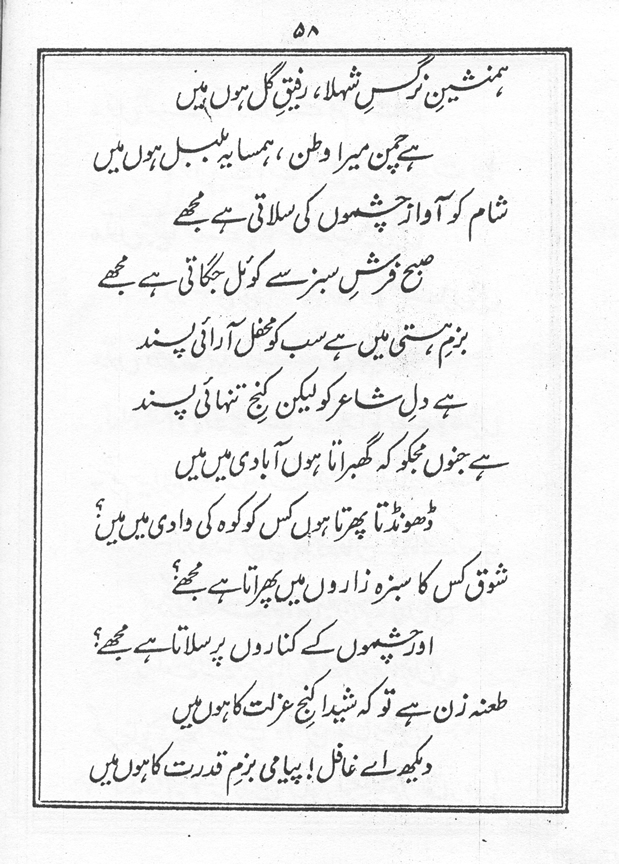 ۵۸
ہمنشینِ نرگسِ شہلا، رفیقِ گل ہوں میں
ہے چمن میرا وطن، ہمسایہ بلبل ہوں میں
شام کو آواز چشموں کی سلاتی ہے مجھے
صبح فرشِ سبز سے کوئل جگاتی ہے مجھے
بزمِ ہستی میں ہے سب کو محفل آرائی پسند
ہے دلِ شاعر کو لیکن کنجِ تنہائی پسند
ہے جنوں مجکو کہ گھبراتا ہوں آبادی میں میں
ڈھونڈتا پھرتا ہوں کس کو کوہ کی وادی میں میں؟
شوق کس کا سبزہ زاروں میں پھراتا ہے مجھے؟
اور چشموں کے کناروں پر سلاتا ہے مجھے؟
طعنہ زن ہے تو کہ شیدا کنجِ عزلت کا ہوں میں
دیکھ اے غافل! پیامی بزمِ قدرت کا ہوں میں